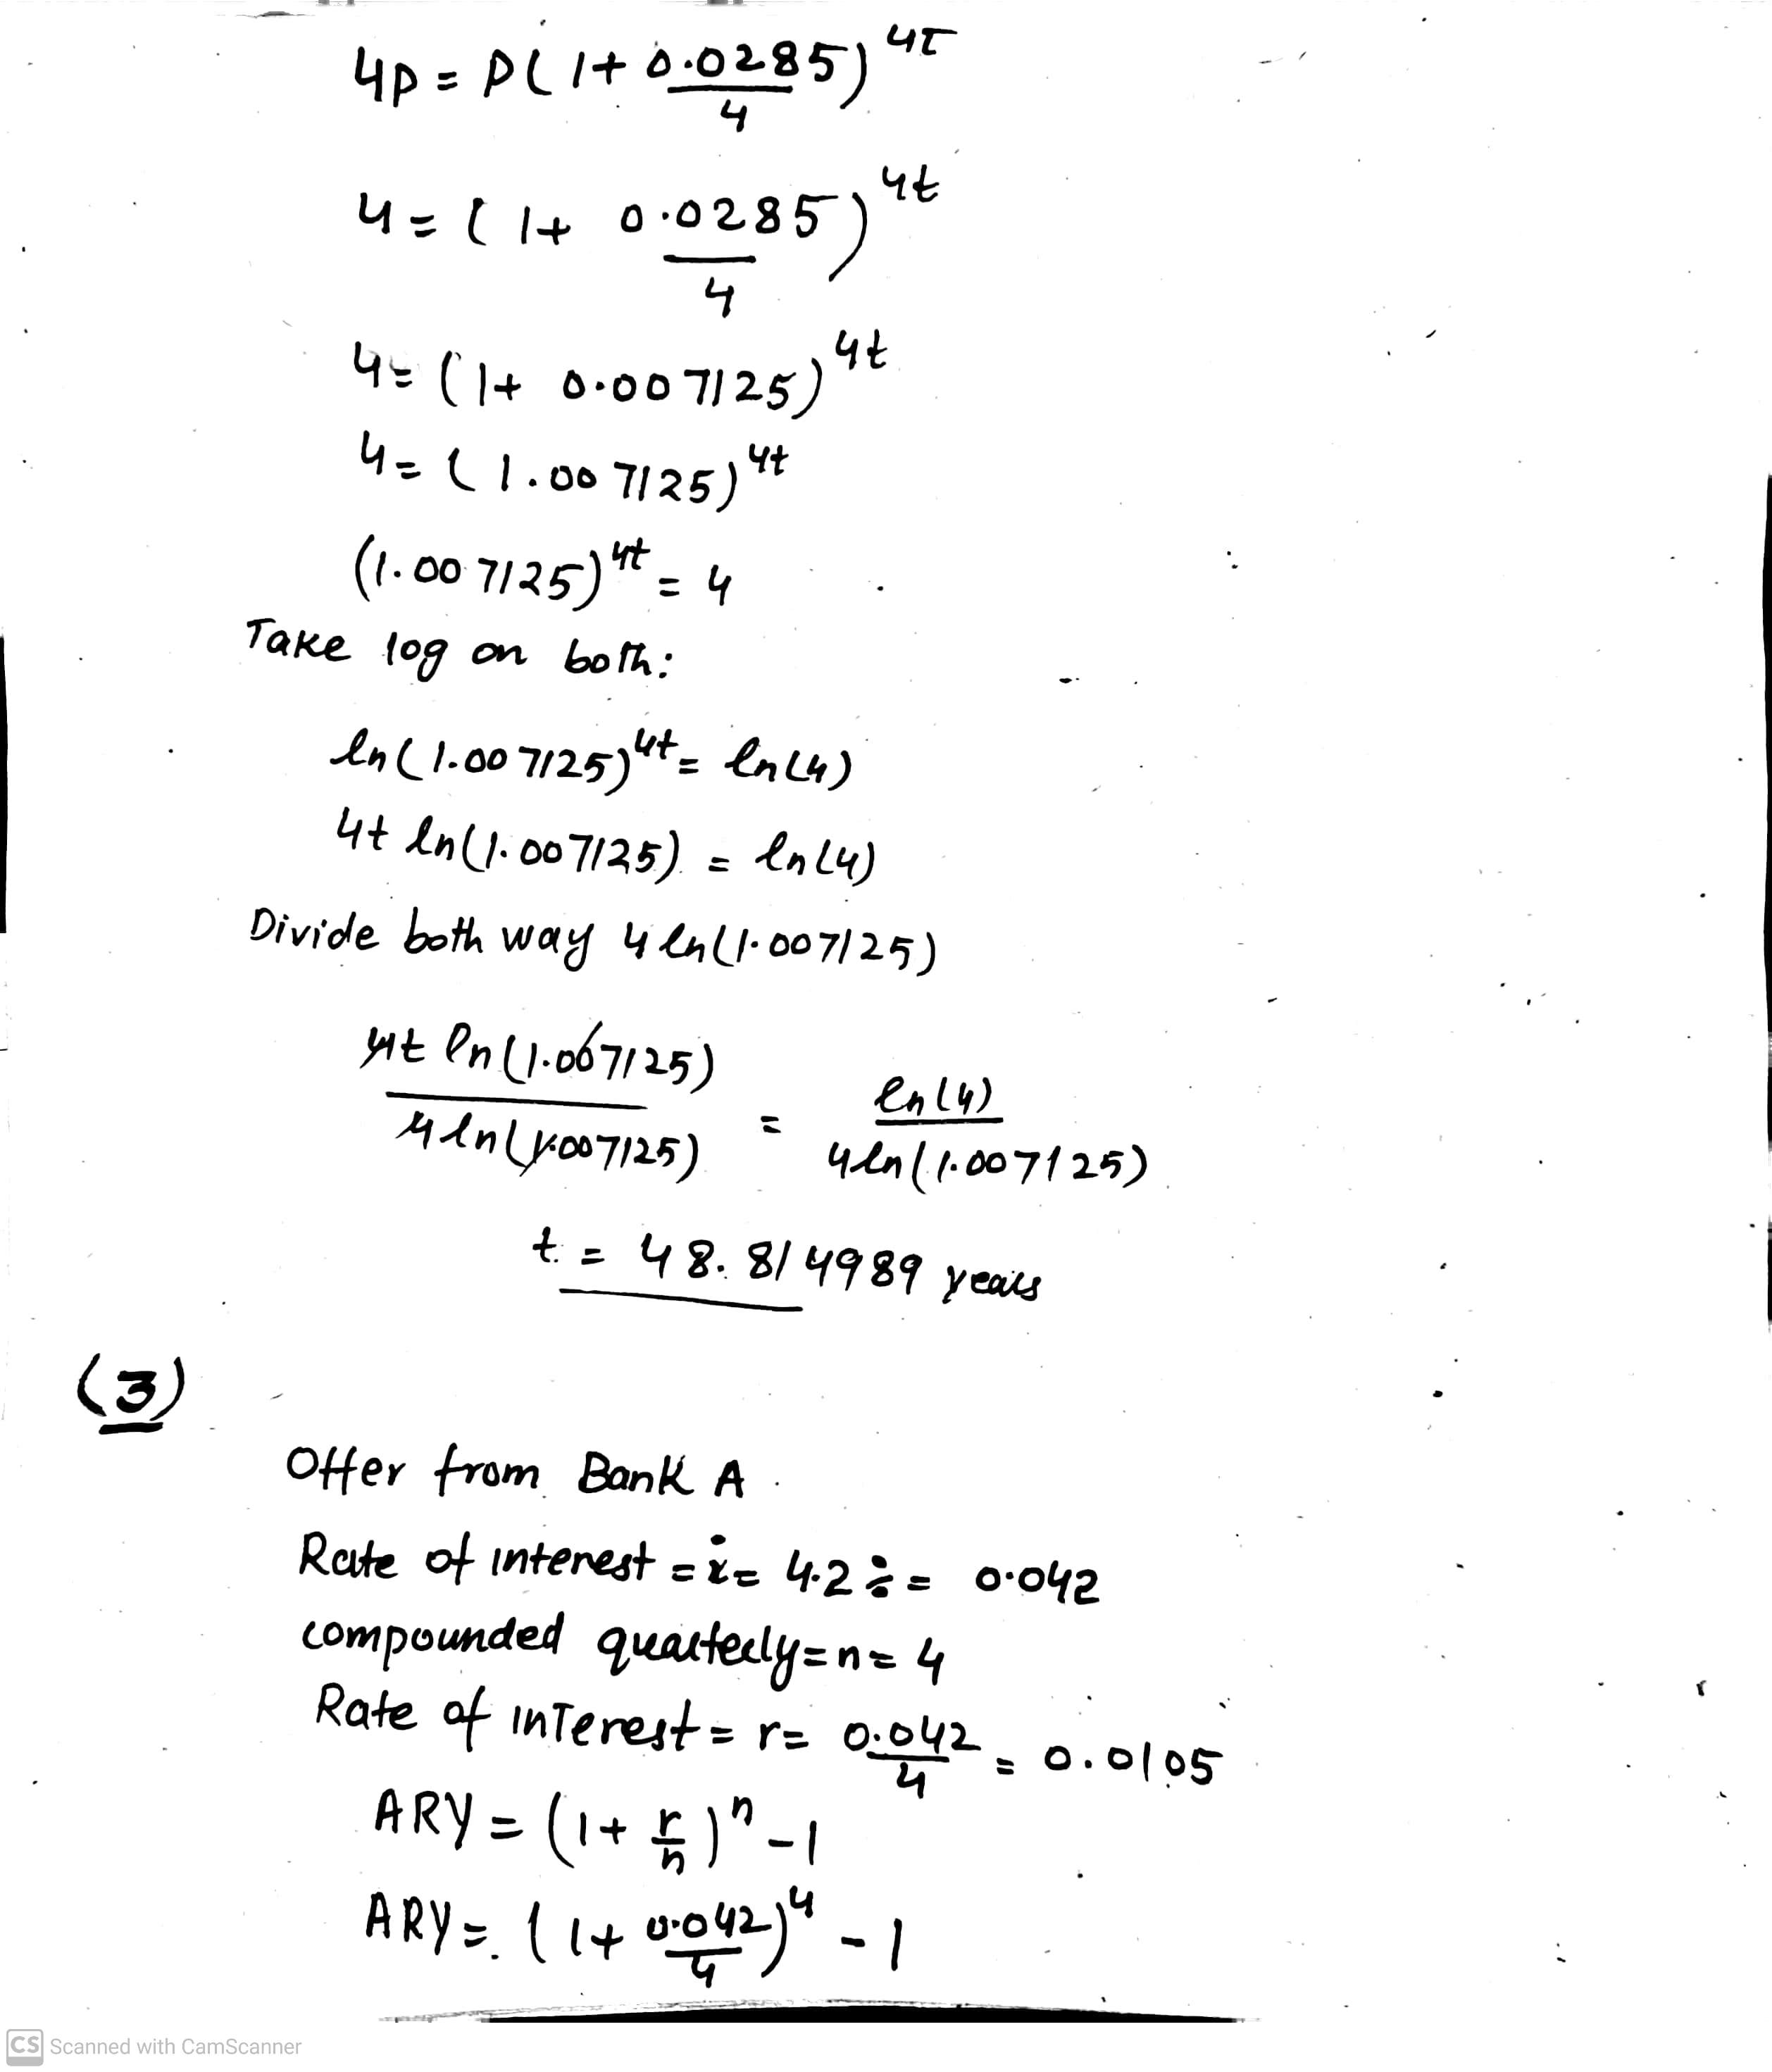 4P = P(1+ 0.0285/4)^4t
4 = (1+ 0.0285/4)^4t
4 = (1+ 0.007125)^4t
4 = (1.007125)^4t
(1.007125)^4t = 4
Take log on both:
ln(1.007125)^4t = ln(4)
4t ln(1.007125) = ln(4)
Divide both way 4 ln(1.007125)
4t ln(1.007125) / 4 ln(1.007125) = ln(4) / 4 ln(1.007125)
t = 48.814989 years
(3)
Offer from Bank A
Rate of interest = i = 4.2 % = 0.042
compounded quarterly = n = 4
Rate of inTerest = r = 0.042/4 = 0.0105
ARY = (1+ r/n)^n - 1
ARY = (1+ 0.042/4)^4 - 1
CS Scanned with CamScanner